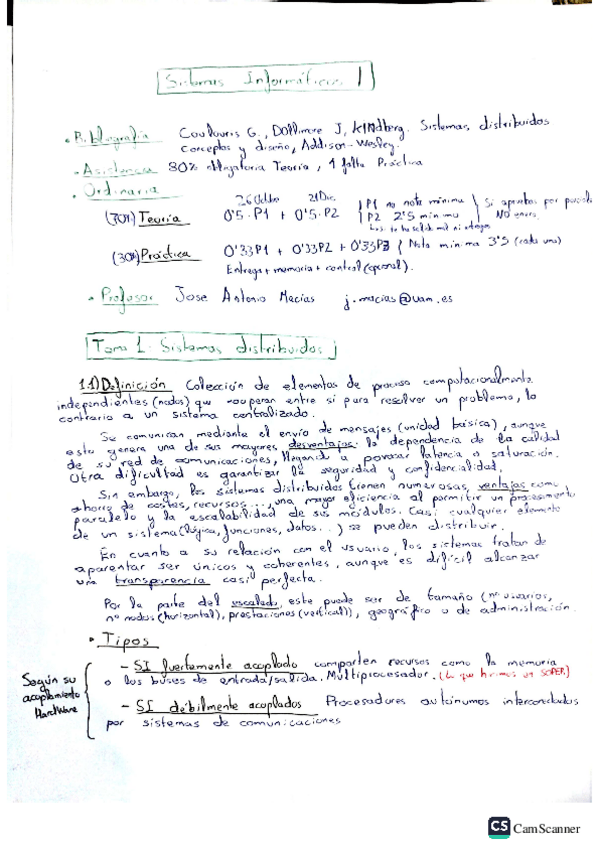 Sistemas Informáticos I
• Bibliografía Coulouris G., Dollimore J, Kindberg. Sistemas distribuidos
conceptos y diseño, Addison-Wesley.
• Asistencia 80% obligatoria Teoría, 1 falta Práctica
• Ordinaria
26 Octubre 21 Dic
(70%) Teoría 0'5·P1 + 0'5·P2 P1 no nota mínima Si apruebas por parciales
P2 2'5 mínimo NO
(30%) Práctica 0'33P1 + 0'33P2 + 0'33P3 Nota mínima 3'5 (cada una)
Entrega + memoria + control (opcional).
• Profesor Jose Antonio Macías j.macias@uam.es
Tema 1. Sistemas distribuidos
1.1) Definición Colección de elementos de proceso computacionalmente
independientes (nodos) que cooperan entre sí para resolver un problema, lo
contrario a un sistema centralizado.
Se comunican mediante el envío de mensajes (unidad básica), aunque
esto genera una de sus mayores desventajas: la dependencia de la calidad
de su red de comunicaciones, llegando a provocar latencia o saturación.
Otra dificultad es garantizar la seguridad y confidencialidad.
Sin embargo, los sistemas distribuidos tienen numerosas ventajas como
ahorro de costes, recursos..., una mayor eficiencia al permitir un procesamiento
paralelo y la escalabilidad de sus módulos. Casi cualquier elemento
de un sistema (lógica, funciones, datos...) se pueden distribuir.
En cuanto a su relación con el usuario, los sistemas tratan de
aparentar ser únicos y coherentes, aunque es difícil alcanzar
una transparencia casi perfecta.
Por la parte del escalado, este puede ser de tamaño (nº usuarios,
nº nodos (horizontal), prestaciones (vertical)), geográfico o de administración.
• Tipos
Según su
acoplamiento
Hardware
- SI fuertemente acoplado comparten recursos como la memoria
o los buses de entrada/salida. Multiprocesador. (Lo que hicimos en SOPER)
- SI débilmente acoplados Procesadores autónomos interconectados
por sistemas de comunicaciones
CS CamScanner